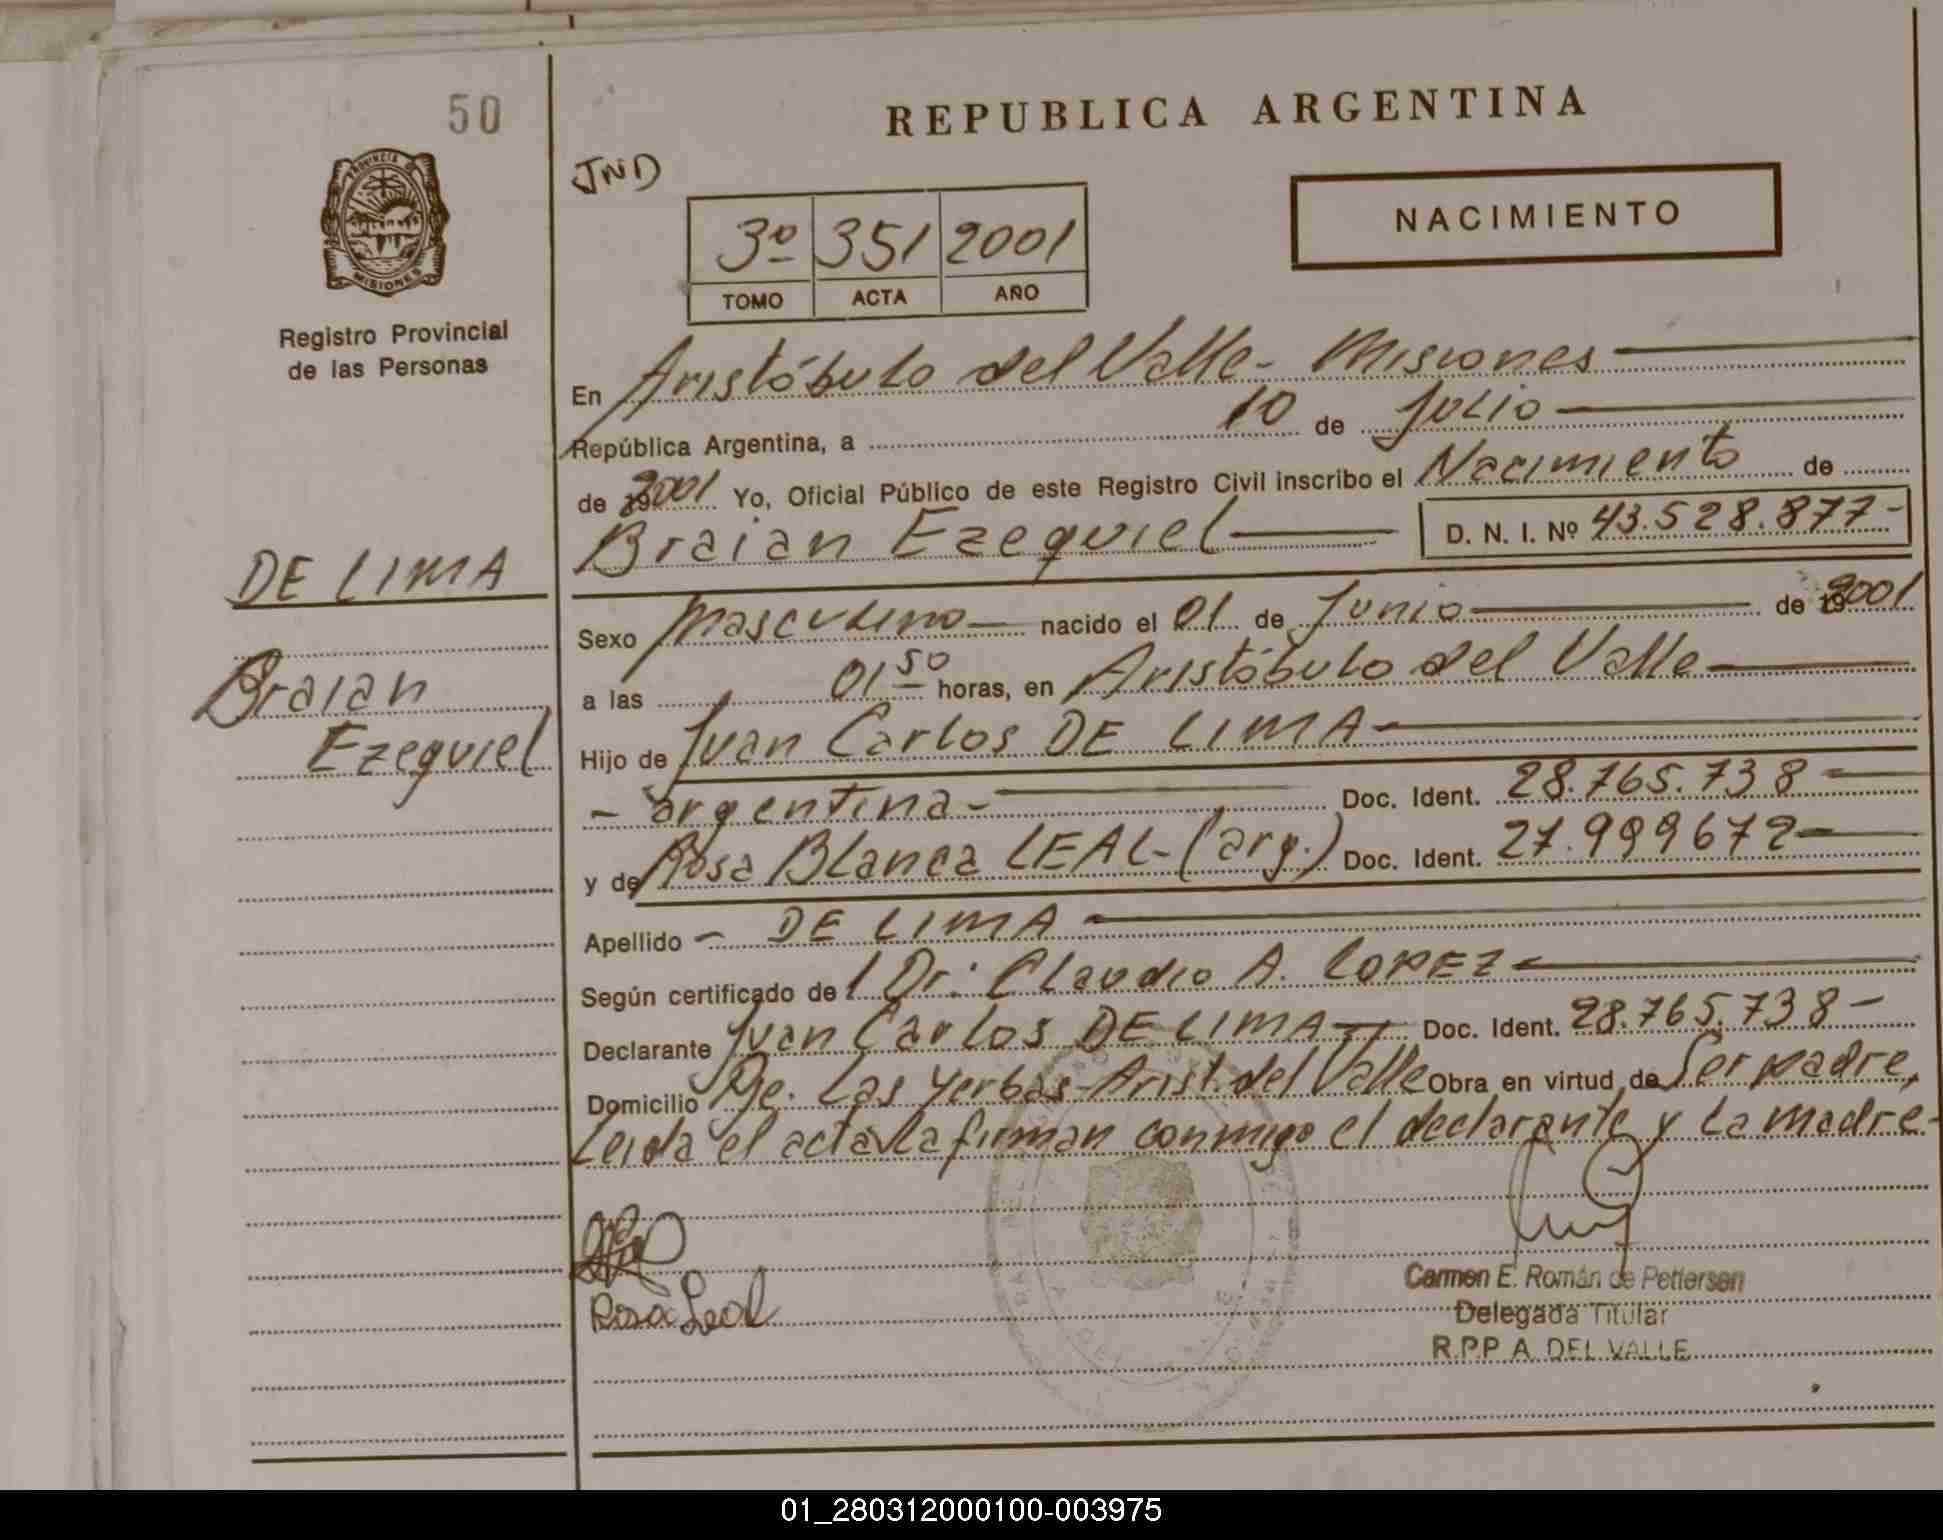 50
REPUBLICA ARGENTINA
JND
NACIMIENTO
3º 351 2001
TOMO ACTA AÑO
PROVINCIA DE
MISIONES
Registro Provincial
de las Personas
En Aristóbulo del Valle - Misiones
República Argentina, a 10 de Julio
de 2001 Yo, Oficial Público de este Registro Civil inscribo el Nacimiento de
Braian Ezequiel D. N. I. Nº 43.528.877-
DE LIMA
Braian
Ezequiel
Sexo masculino nacido el 01 de Junio de 2001
a las 01 50 horas, en Aristóbulo del Valle
Hijo de Juan Carlos DE LIMA
- argentina - Doc. Ident. 28.765.738
y de Rosa Blanca LEAL - (arg.) Doc. Ident. 27.999672
Apellido - DE LIMA
Según certificado de l Dr. Claudio A. LOPEZ
Declarante Juan Carlos DE LIMA Doc. Ident. 28.765.738-
Domicilio Pje. Las Yerbas - Arist. del Valle Obra en virtud de Ser padre,
Leida el acta la firman conmigo el declarante y la madre.
Rosa Leal
Carmen E. Román de Pettersen
Delegada Titular
R.P.P A. DEL VALLE
01_280312000100-003975